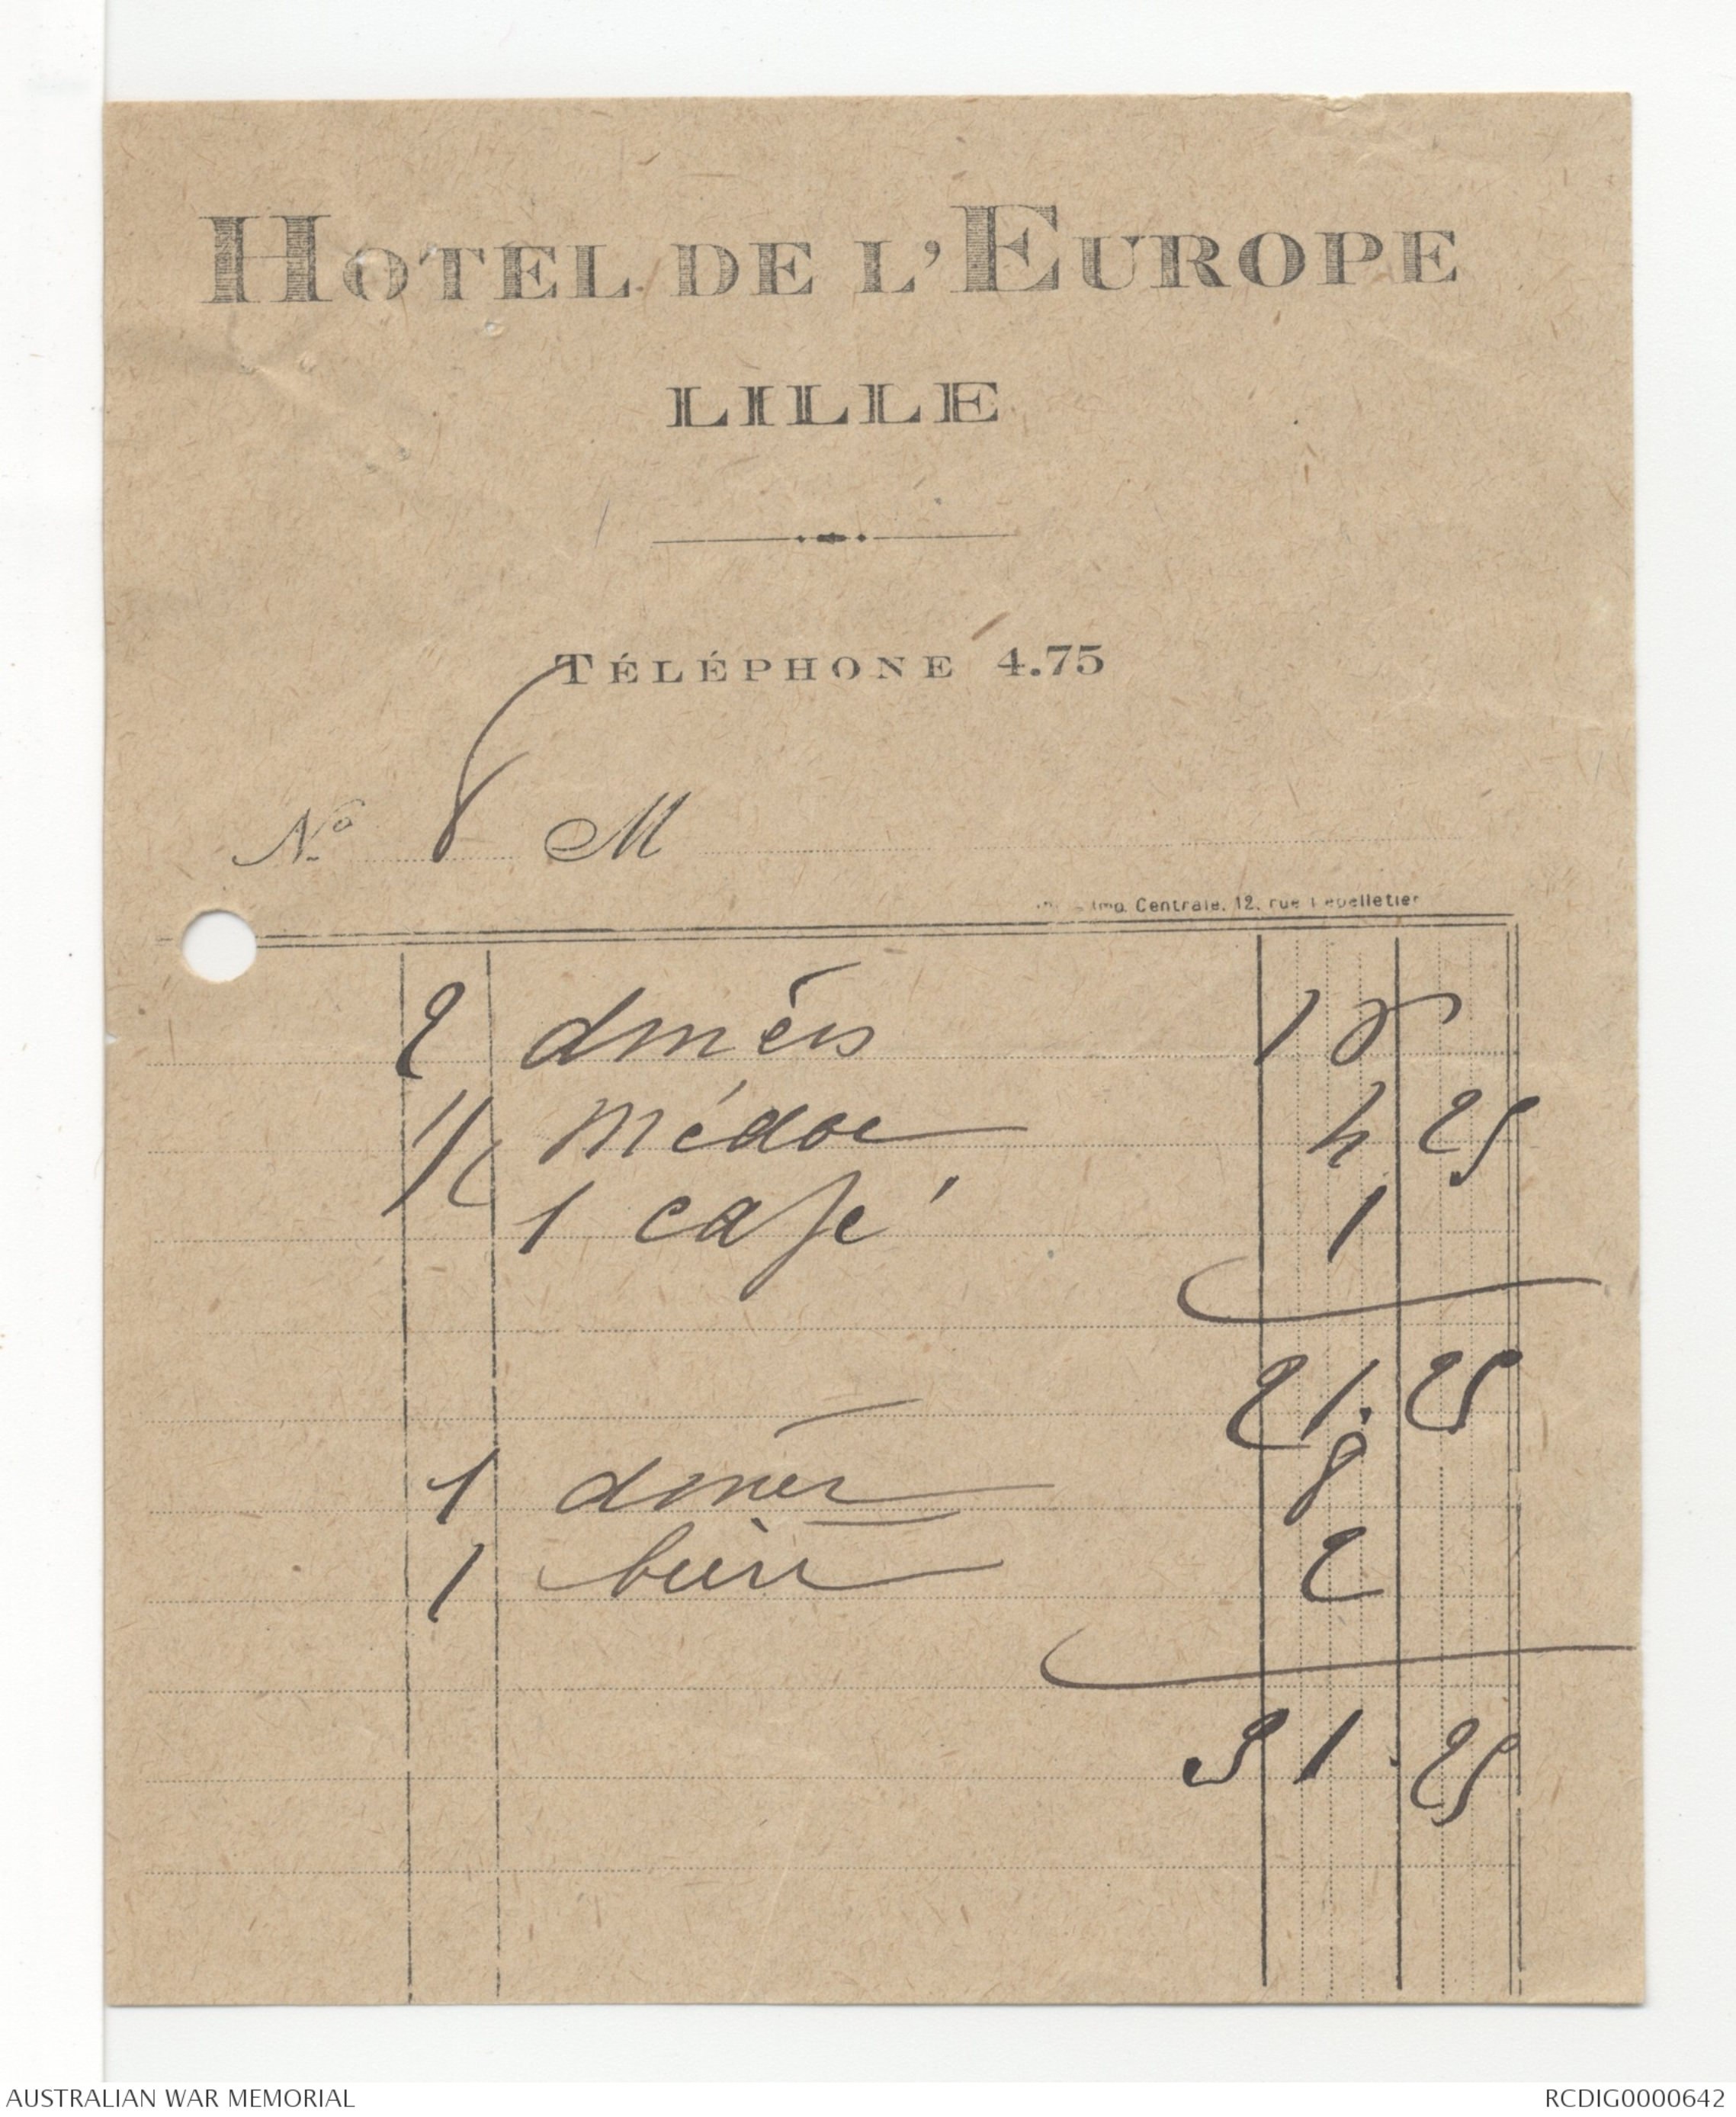 HOTEL DE L'EUROPE
LILLE
TÉLÉPHONE 4.75
Nº 8 M
Imp. Centrale, 12, rue Lepelletier
2 diners 16
1/2 Médoc 4 25
1 café 1
21.25
1 diner 8
1 bière 2
31.25
AUSTRALIAN WAR MEMORIAL
RCDIG0000642